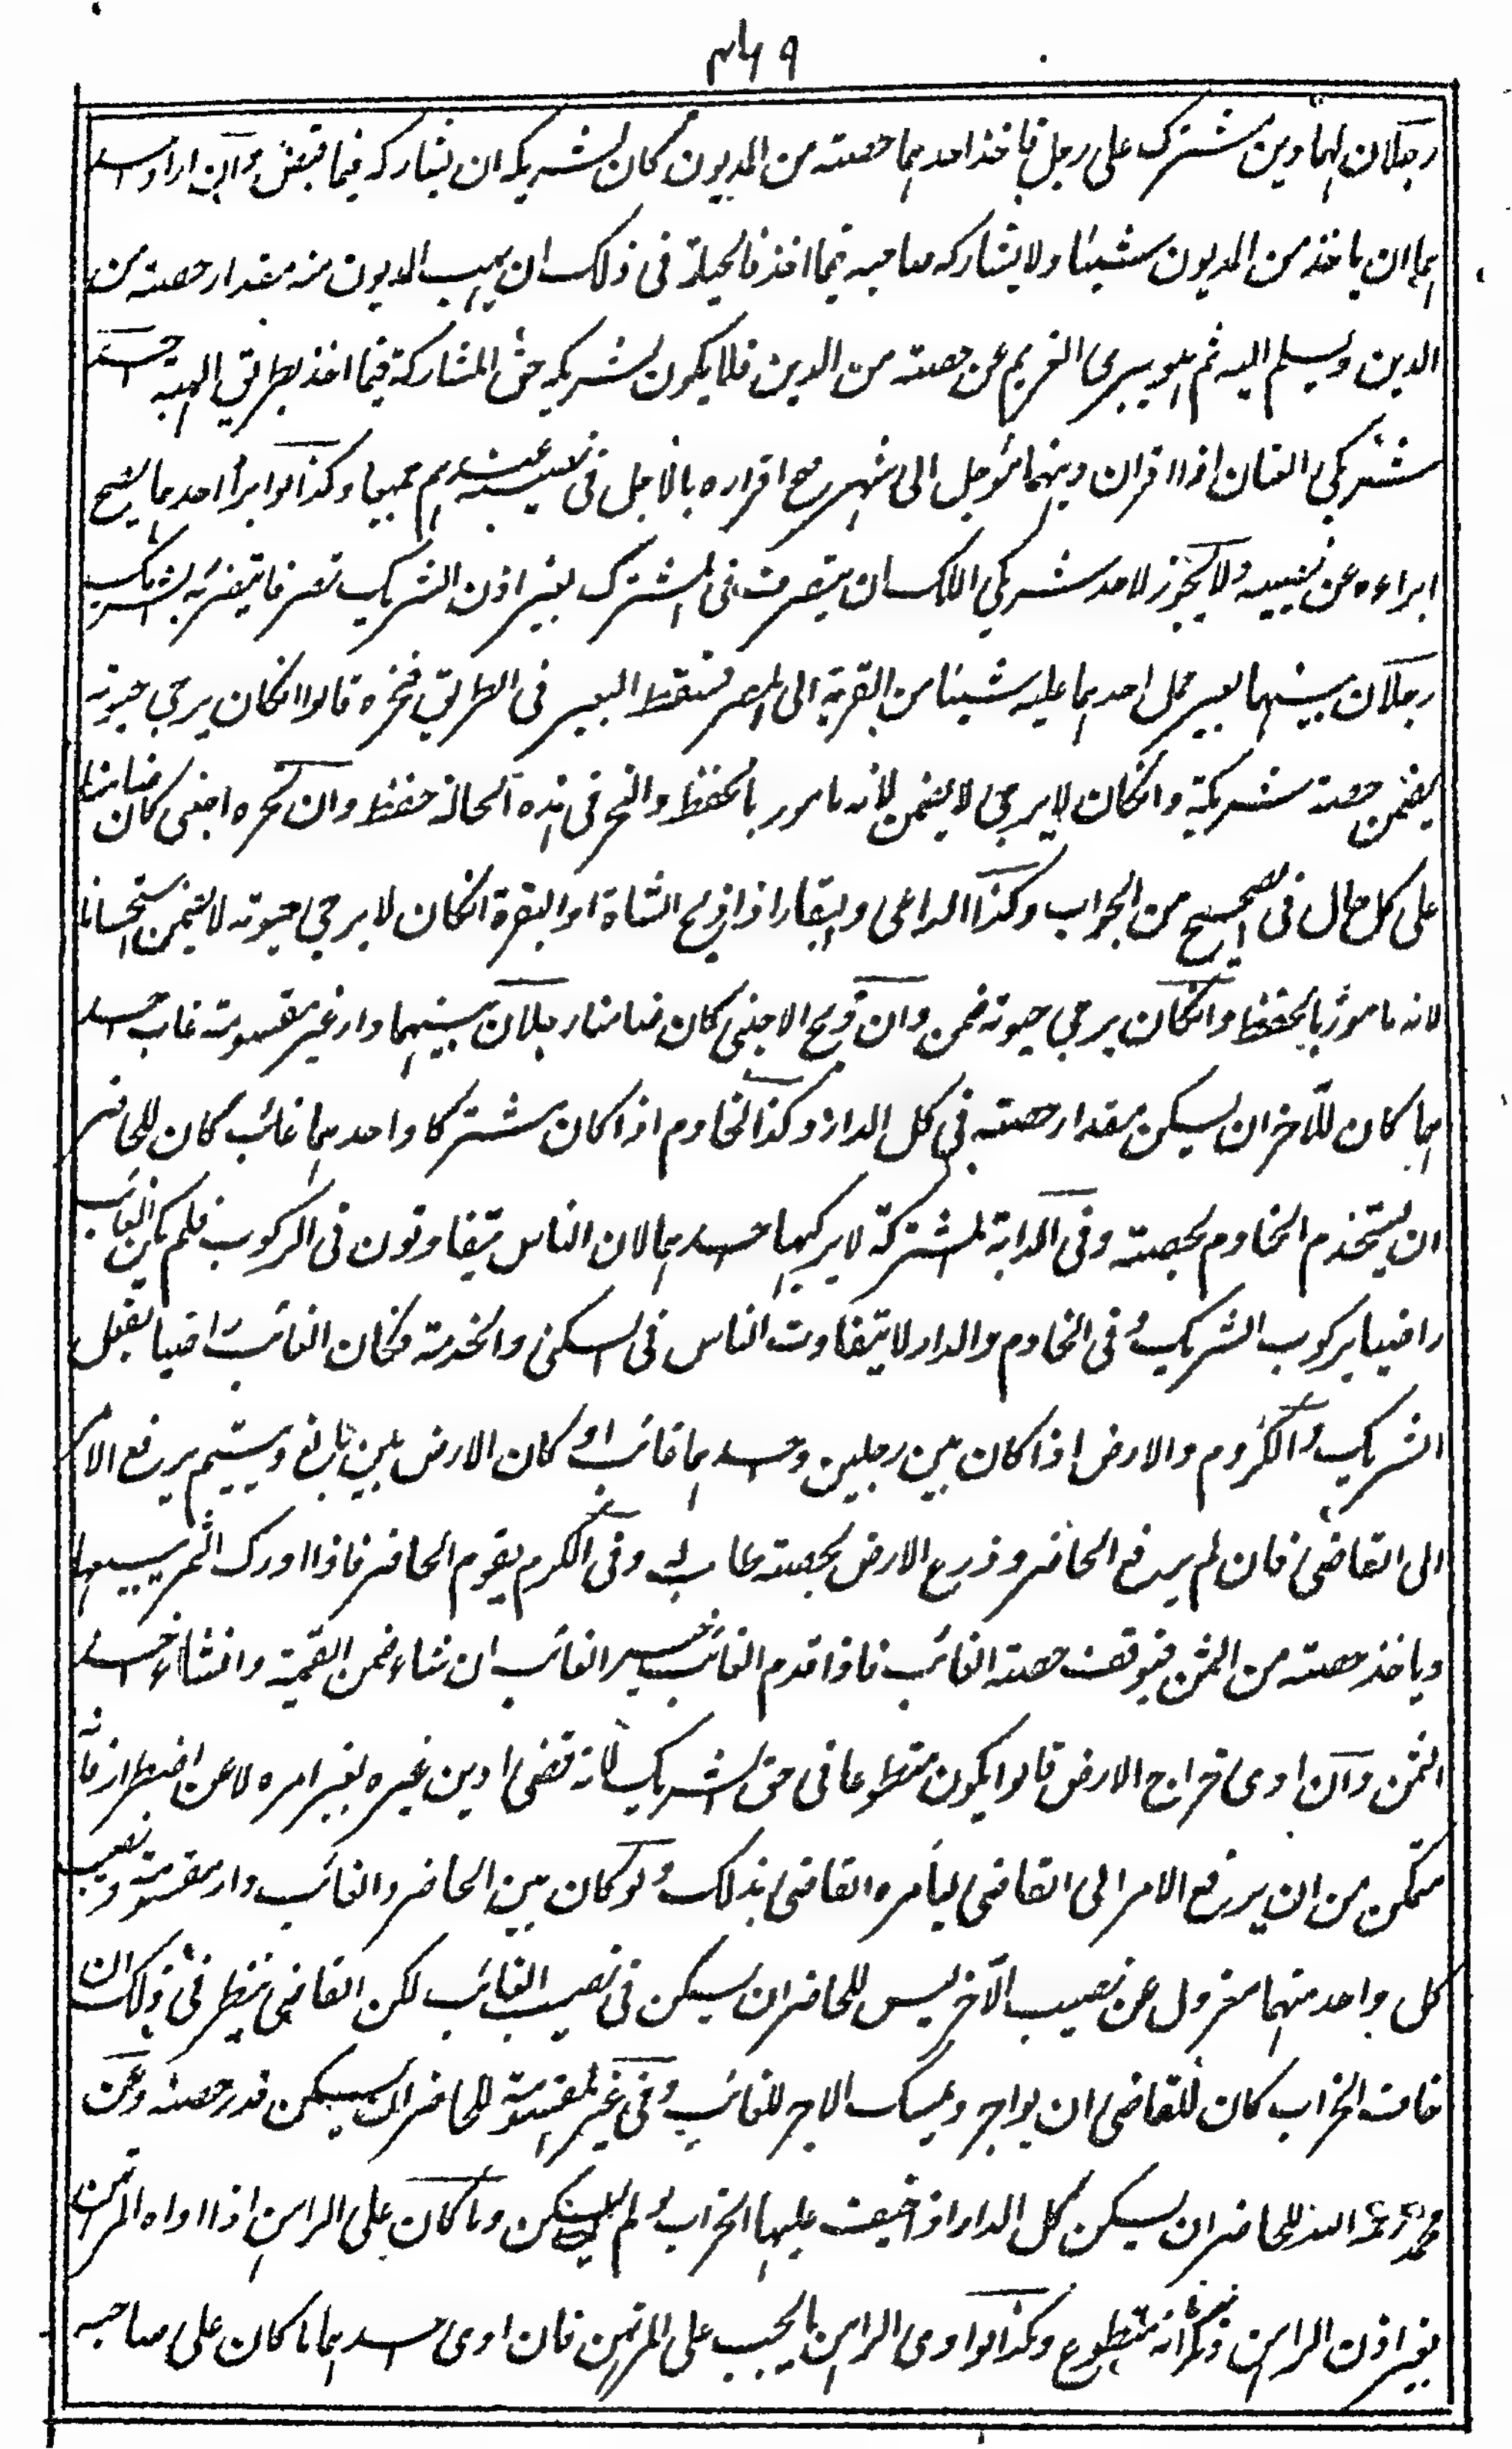 ٣٦٩
رجلان لهما دين مشترك على رجل فاخذ احدهما حصته من المديون كان لشريكه ان يشاركه فيما قبض وان اراد احد
هما ان ياخذ من المديون شيئا ولا يشاركه صاحبه فيما اخذ فالحيلة فى ذلك ان يهب المديون منه مقدار حصته من
الدين ويسلم اليه ثم هو يبرى الغريم عن حصته من الدين فلا يكون لشريكه حق المشاركة فيما اخذ بطريق الهبة احد
شريكى العنان اذا اقر ان دينهما مؤجل الى شهر صح اقراره بالاجل فى نصيبه عندهم جميعا وكذا لو ابرأ احدهما يصح
ابراءه عن نصيبه ولا يجوز لاحد شريكى الملك ان يتصرف فى المشترك بغير اذن الشريك تصرفا يتضرر به الشريك
رجلان بينهما بعير حمل احدهما عليه شيئا من القرية الى المصر فسقط البعير فى الطريق فنحره قالوا انكان يرجى حيوته
يضمن حصة شريكة وانكان لا يرجى لا يضمن لانه مامور بالحفظ والنحر فى هذه الحالة حفظ وان نحره اجنبى كان ضامنا
على كل حال فى الصحيح من الجواب وكذا الراعى والبقار اذا ذبح الشاة او البقرة انكان لا يرجى حيوته لا يضمن استحسانا
لانه مامور بالحفظ وانكان يرجى حيوته ضمن وان ذبح الاجنبى كان ضامنا رجلان بينهما دار غير مقسومة غاب احد
هما كان للآخر ان يسكن مقدار حصته فى كل الدار وكذا الخادم اذا كان مشتركا واحدهما غائب كان للحاضر
ان يستخدم الخادم بحصته وفى الدابة المشتركة لا يركبها احدهما لان الناس يتفاوتون فى الركوب فلم يكن الغائب
راضيا بركوب الشريك وفى الخادم والدار لا يتفاوت الناس فى السكنى والخدمة فكان الغائب راضيا بفعل
الشريك والكروم والارض اذا كان بين رجلين واحدهما غائب او كان الارض بين بالغ ويتيم يرفع الامر
الى القاضى فان لم يرفع الحاضر وزرع الارض بحصته طاب له وفى الكرم يقوم الحاضر فاذا ادرك الثمر يبيعها
وياخذ حصته من الثمن فيوقف حصة الغائب فاذا قدم الغائب خير الغائب ان شاء ضمن القيمة وانشاء اخذ
الثمن وان ادى خراج الارض قالوا يكون متطوعا فى حق الشريك لانه قضى دين غيره بغير امره لا عن اضطرار فانه
متمكن من ان يرفع الامر الى القاضى ليأمره القاضى بذلك ولو كان بين الحاضر والغائب دار مقسومة ونصيب
كل واحد منهما معزول عن نصيب الآخر ليس للحاضر ان يسكن فى نصيب الغائب لكن القاضى ينظر فى ذلك ان
خاف الخراب كان للقاضى ان يواجر ويمسك الاجر للغائب وفى غير المقسومة للحاضر ان يسكن قدر حصته وعن
محمد رحمه الله للحاضر ان يسكن كل الدار اذا خيف عليها الخراب لو لم يسكن وما كان على الراهن اذا اداه المرتهن
بغير اذن الراهن ذكرنا انه متطوع وكذا لو ادى الراهن ما يجب على المرتهن فان ادى احدهما ما كان على صاحبه